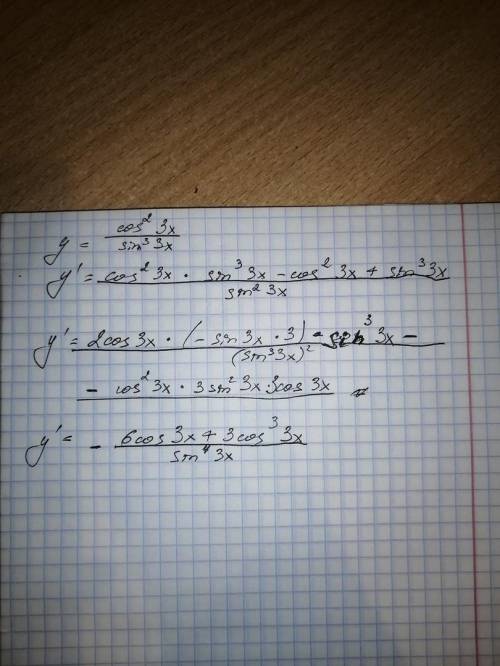 y = cos² 3x / sin³ 3x
y' = cos² 3x · sin³ 3x - cos² 3x + sin³ 3x / sin² 3x
y' = 2cos 3x · (- sin 3x · 3) · sin³ 3x - / (sin³ 3x)²
- cos² 3x · 3 sin² 3x · 3cos 3x =
y' = - 6cos 3x + 3cos³ 3x / sin⁴ 3x